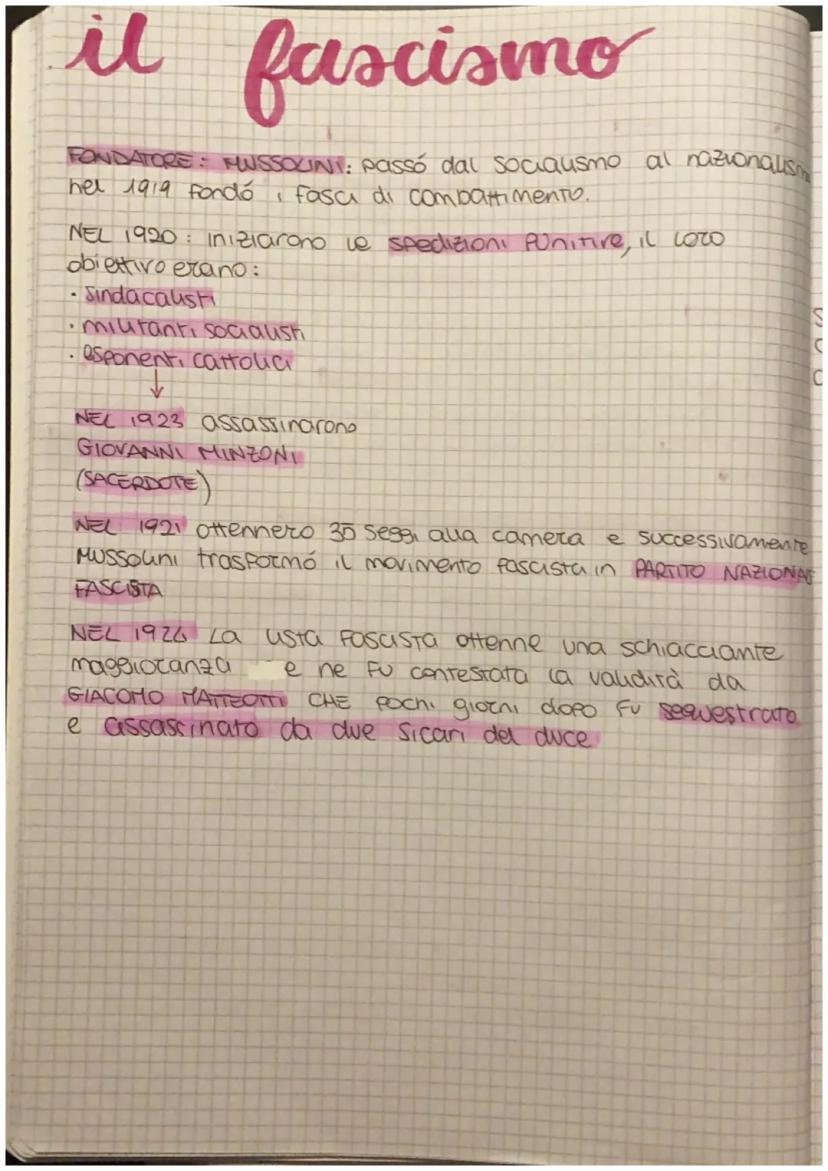 il fascismo
FONDATORE: MUSSOLINI: passó dal socialismo al nazionalism
nel 1919 fondó i fasci di combattimento.
NEL 1920: iniziarono le spedizioni punitive, il loro
obiettivo erano:
· sindacalisti
· militanti socialisti
· esponenti cattolici
↓
NEL 1923 assassinarono
GIOVANNI MINZONI
(SACERDOTE)
NEL 1921 ottennero 35 seggi alla camera e successivamente
Mussolini trasformó il movimento fascista in PARTITO NAZIONALE
FASCISTA
NEL 1924 La lista fascista ottenne una schiacciante
maggioranza e ne fu contestata la validità da
GIACOMO MATTEOTTI CHE pochi giorni dopo fu sequestrato
e assassinato da due sicari del duce